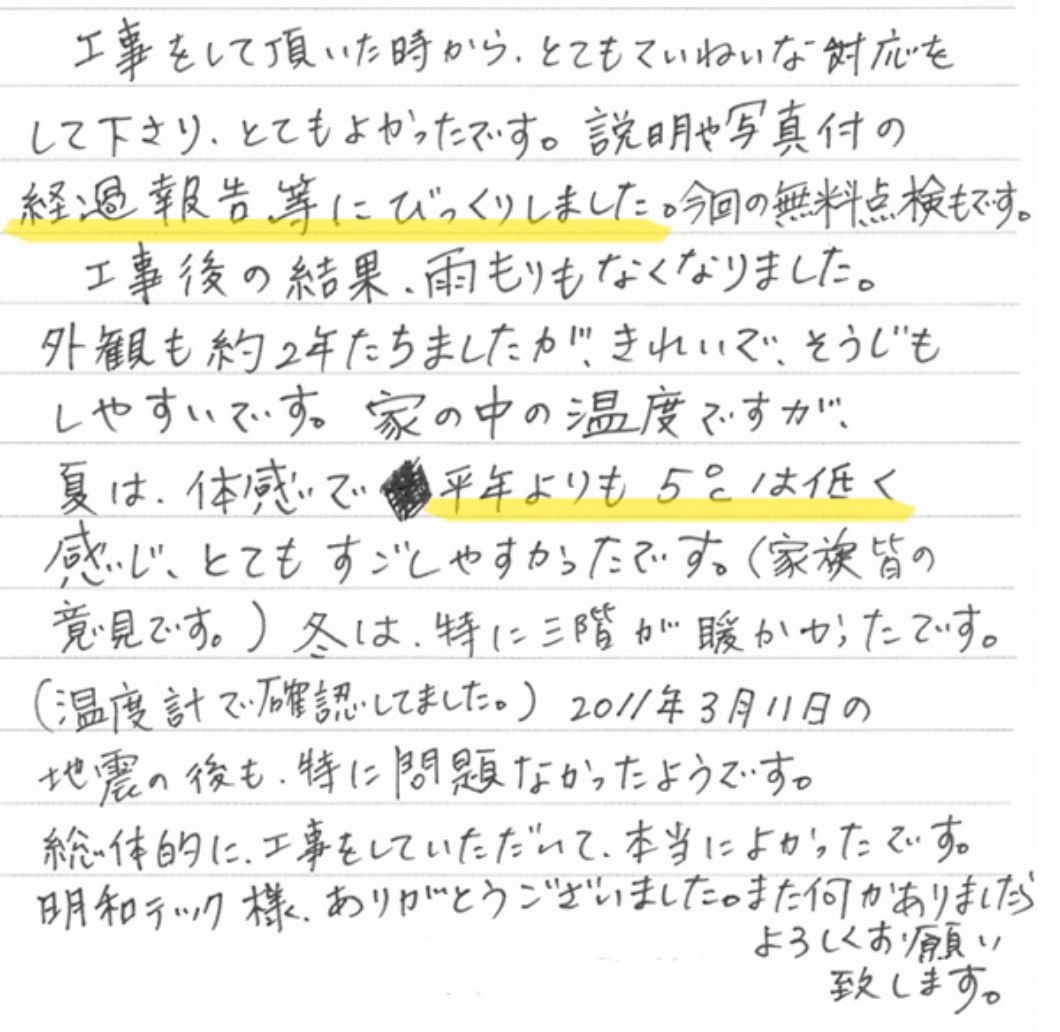 工事をして頂いた時から、とてもていねいな対応を
して下さり、とてもよかったです。説明や写真付の
経過報告等にびっくりしました。今回の無料点検もです。
工事後の結果、雨もりもなくなりました。
外観も約2年たちましたが、きれいで、そうじも
しやすいです。家の中の温度ですが、
夏は、体感で平年よりも5℃は低く
感じ、とてもすごしやすかったです。(家族皆の
意見です。)冬は、特に三階が暖かかったです。
(温度計で確認してました。)2011年3月11日の
地震の後も、特に問題なかったようです。
総体的に、工事をしていただいて、本当によかったです。
明和テック様、ありがとうございました。また何かありましたら
よろしくお願い
致します。